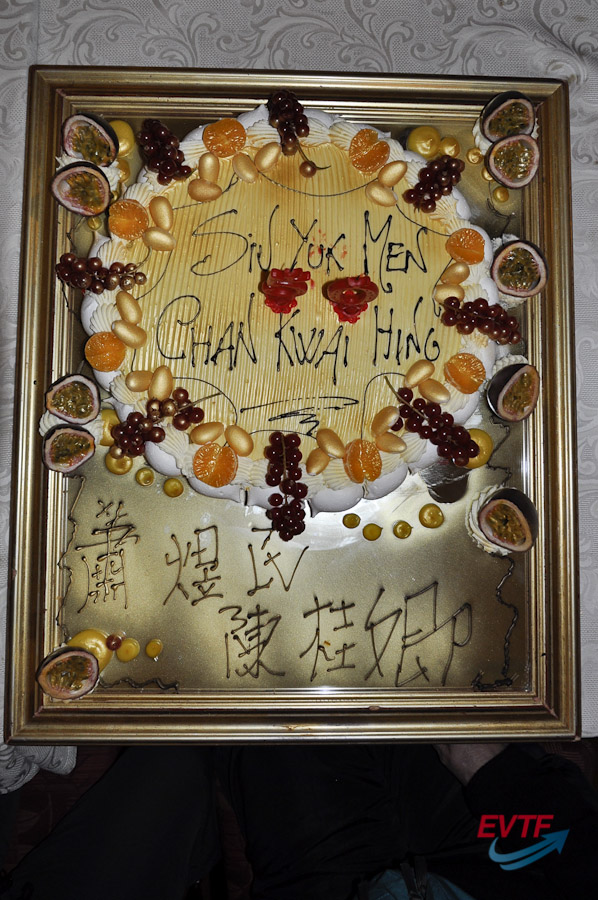 SIN YUK MEN
CHAN KWAI HING
蕭煜民
陳桂娜
EVTF